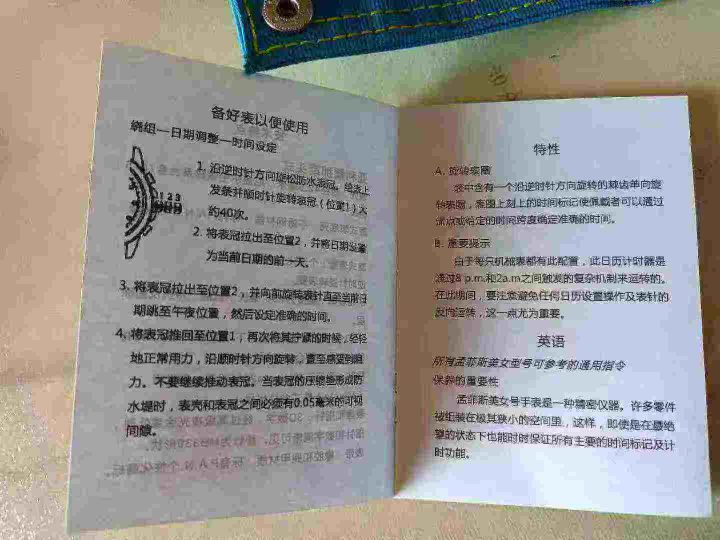 备好表以便使用
绕组—日期调整—时间设定
1 2 3
1. 沿逆时针方向旋松防水表冠。给表上
发条并顺时针旋转表冠（位置1）大
约40次。
2. 将表冠拉出至位置2，并将日期设置
为当前日期的前一天。
3. 将表冠拉出至位置2，并向前旋转表针直至当前日
期跳至午夜位置，然后设定准确的时间。
4. 将表冠推回至位置1，再次将其拧紧的时候，轻轻
地正常用力，沿顺时针方向旋转，直至感受到阻
力。不要继续推动表冠。当表冠的压缩垫形成防
水堤时，表壳和表冠之间必须有0.05毫米的可视
间隙。
特性
A. 旋转表圈
您中含有一个沿逆时针方向旋转的棘齿单向旋
转表圈，表圈上刻上的时间标记使佩戴者可以通过
该点或给定的时间跨度确定准确的时间。
B. 重要提示
由于每只机械表都有此配置，此日历计时器是
通过8 p.m.和2a.m之间触发的复杂机制来运转的。
在此期间，要注意避免任何日历设置操作及表针的
反向运转，这一点尤为重要。
英语
所有孟菲斯美女型号可参考的通用指令
保养的重要性
孟菲斯美女号手表是一种精密仪器。许多零件
被组装在极其狭小的空间里，这样，即使是在最绝
望的状态下也能时时保证所有主要的时间标记及计
时功能。